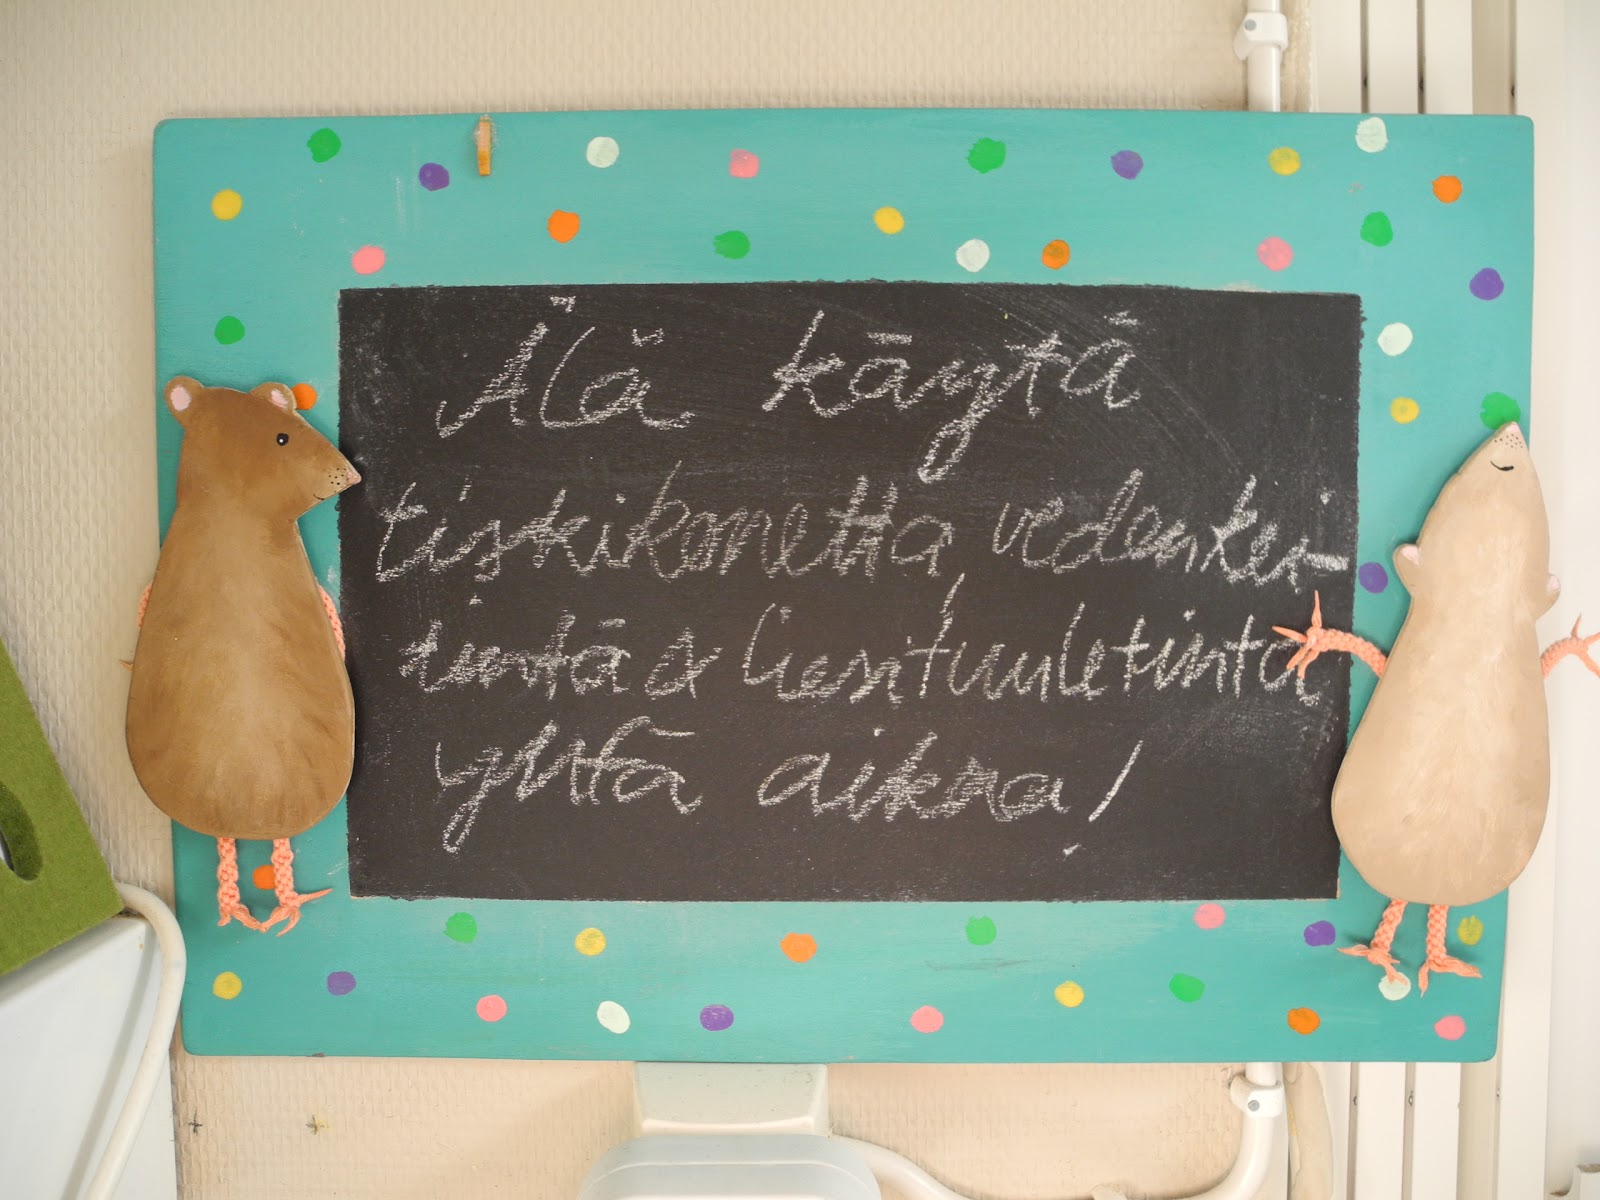 Älä käytä
tiskikonetta vedenkei-
tintä & liesituuletinta
yhtä aikaa!